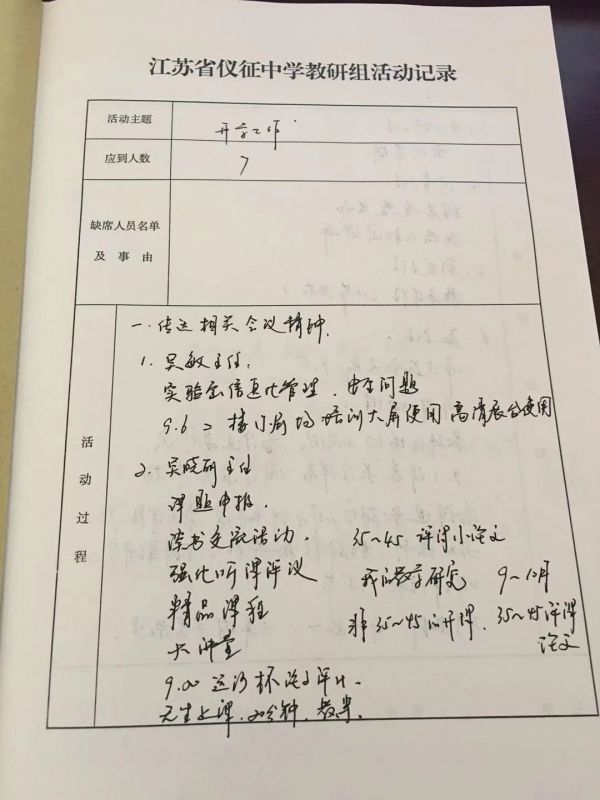 江苏省仪征中学教研组活动记录
活动主题
开学工作
应到人数
7
缺席人员名单
及 事 由
活动过程
一. 传达相关会议精神.
1. 吴敏主任:
实验室信息化管理. 安全问题
9.6 培训大屏使用 高清展台使用
2. 吴晓研主任
课题申报.
读书交流活动. 35~45 评课小论文
强化听课评议 我的教学研究 9~10月
精品课程 非35~45的开课. 35~45评课
大讲堂 论文
9.00 运河杯论文评比.
无生上课. 20分钟. 教案.